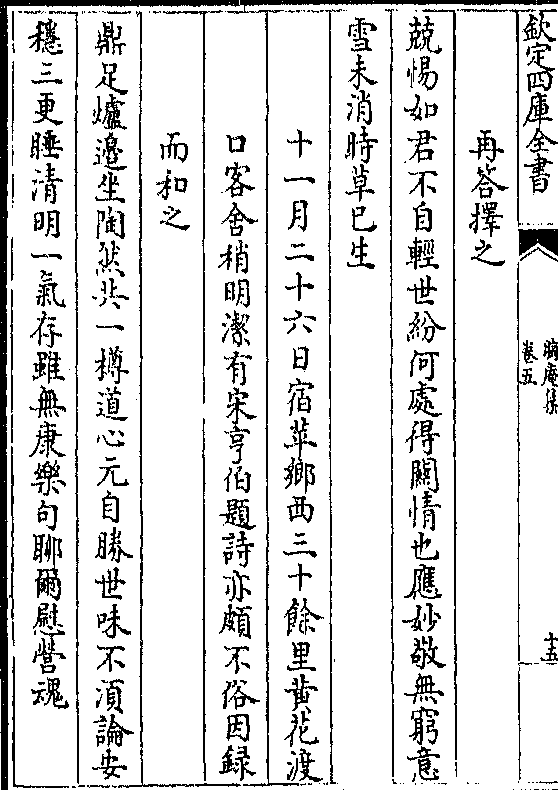 欽定四庫全書
晦庵集
卷五
十五
再答擇之
兢惕如君不自輕世紛何處得關情也應妙敬無窮意
雪未消時草已生
十一月二十六日宿萍鄉西三十餘里黄花渡
口客舍稍明潔有宋亨伯題詩亦頗不俗因録
而和之
鼎足爐邊坐陶然共一樽道心元自勝世味不須論安
穩三更睡清明一氣存雖無康樂句聊爾慰營魂